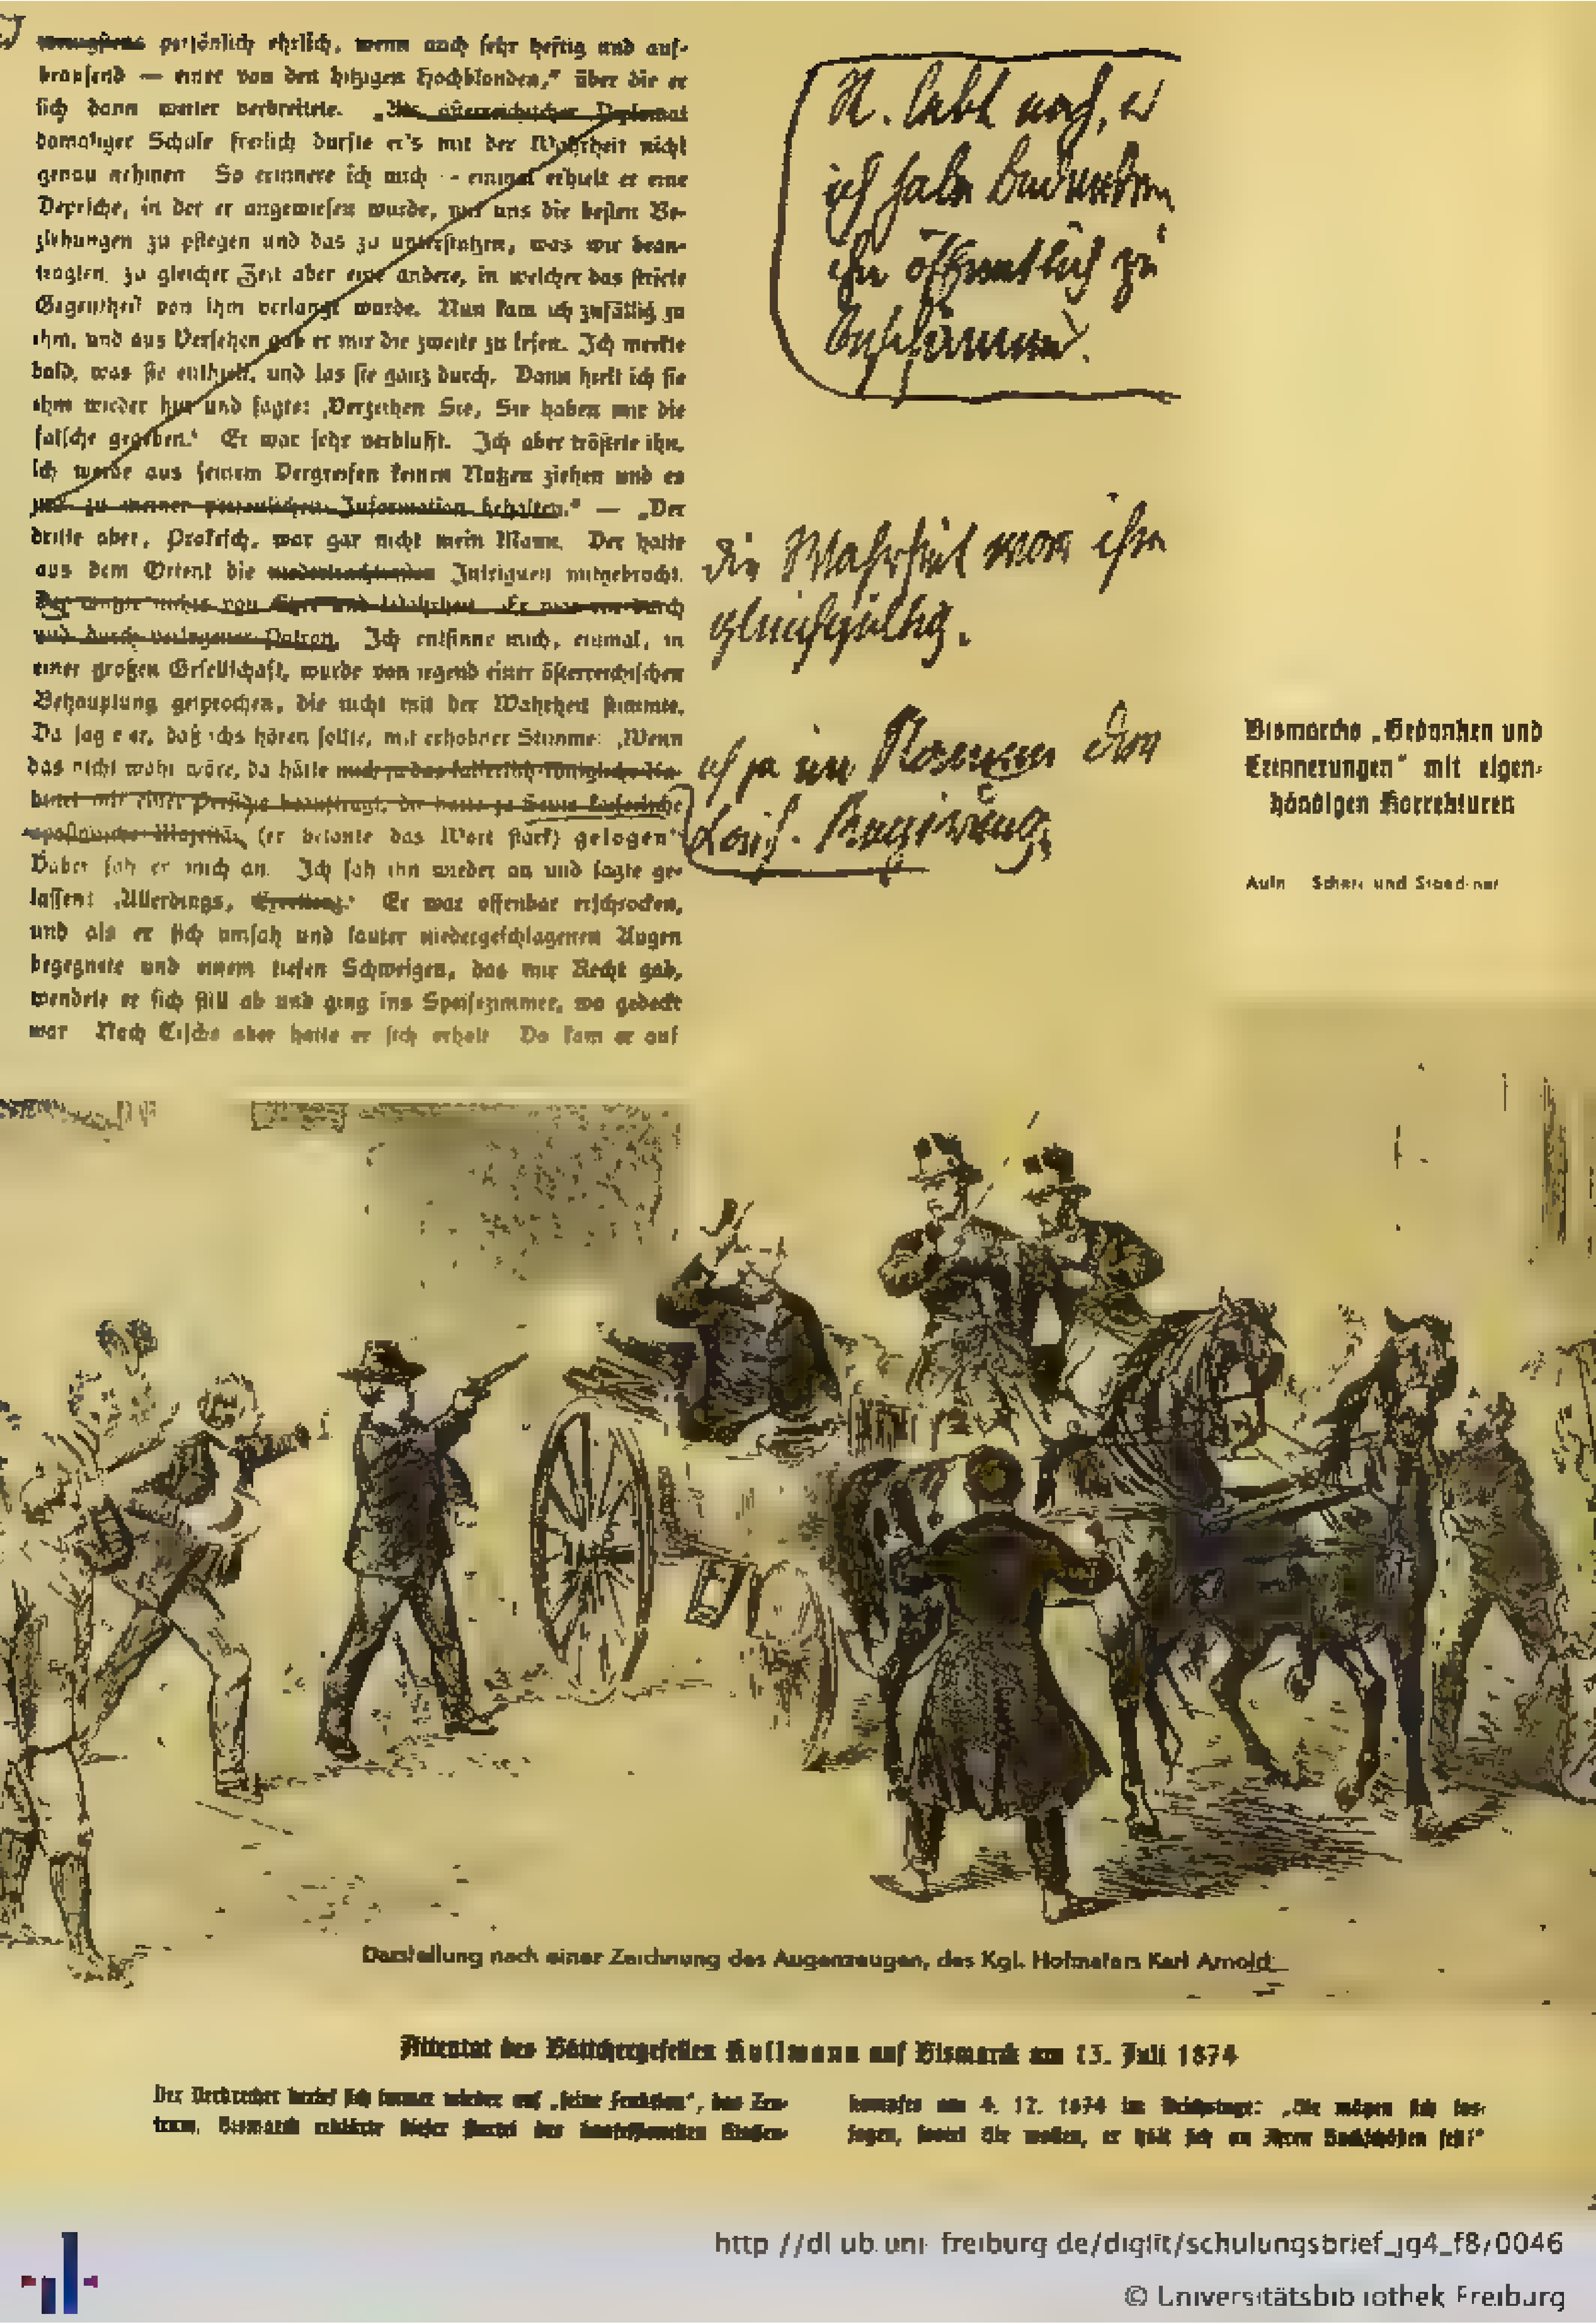 wenigstens persönlich ehrlich, wenn auch sehr heftig und auf-
brausend — einer von den hitzigen Hochblonden,“ über die er
sich dann weiter verbreitete. österreichischer Diplomat
damaliger Schule freilich durfte er's mit der Wahrheit nicht
genau nehmen So erinnere ich mich -- einmal erhielt er eine
Depesche, in der er angewiesen wurde, mit uns die besten Be-
ziehungen zu pflegen und das zu unterstützen, was wir bean-
tragten, zu gleicher Zeit aber eine andere, in welcher das strikte
Gegenteil von ihm verlangt wurde. Nun kam ich zufällig zu
ihm, und aus Versehen gab er mir die zweite zu lesen. Ich merkte
bald, was sie enthielt, und las sie ganz durch. Dann hielt ich sie
ihm wieder hin und sagte: ‚Verzeihen Sie, Sie haben mir die
falsche gegeben.‘ Er war sehr verblüfft. Ich aber tröstete ihn,
ich werde aus seinem Vergreifen keinen Nutzen ziehen und es
nur zu meiner persönlichen Information behalten.“ — „Der
dritte aber, Prokesch, war gar nicht mein Mann. Der hatte
aus dem Orient die Intriguen mitgebracht.
Der wußte nichts von Ehre und Wahrheit. Er war ein durch
und durch verlogener Patron. Ich entsinne mich, einmal, in
einer großen Gesellschaft, wurde von irgend einer österreichischen
Behauptung gesprochen, die nicht mit der Wahrheit stimmte.
Da sagte er, daß ichs hören sollte, mit erhobner Stimme: ‚Wenn
das nicht wahr wäre, da hätte mich ja das kaiserlich-königliche Ka-
binet mit einer Perfidie beauftragt, da hätte ja Seine kaiserliche
apostolische Majestät (er betonte das Wort stark) gelogen‘
Dabei sah er mich an. Ich sah ihn wieder an und sagte ge-
lassen: ‚Allerdings, Exzellenz.‘ Er war offenbar erschrocken,
und als er sich umsah und lauter niedergeschlagenen Augen
begegnete und einem tiefen Schweigen, das mir Recht gab,
wendete er sich still ab und ging ins Speisezimmer, wo gedeckt
war Nach Tische aber hatte er sich erholt Da kam er auf
lebt noch,
ich habe Bedenken
ihn öffentlich zu
beschämen.
die Wahrheit war ihm
gleichgültig.
ich ja im Namen der
Kais. Regierung
Bismarcks „Gedanken und
Erinnerungen“ mit eigen-
händigen Korrekturen
Aufn Scherl und Staedtner
Darstellung nach einer Zeichnung des Augenzeugen, des Kgl. Hofmalers Karl Arnold
Attentat des Böttchergesellen Kullmann auf Bismarck am 13. Juli 1874
Der Verbrecher berief sich immer wieder auf „seine Fraktion“, das Zen-
trum. Bismarck erklärte dieser Partei des
kampfes am 4. 12. 1874 im Reichstage: „Sie mögen sich los-
sagen, soviel Sie wollen, er hält sich an Ihren Rockschößen fest!“
http //dl ub uni- freiburg de/diglit/schulungsbrief_jg4_f8/0046
© Universitätsbibliothek Freiburg